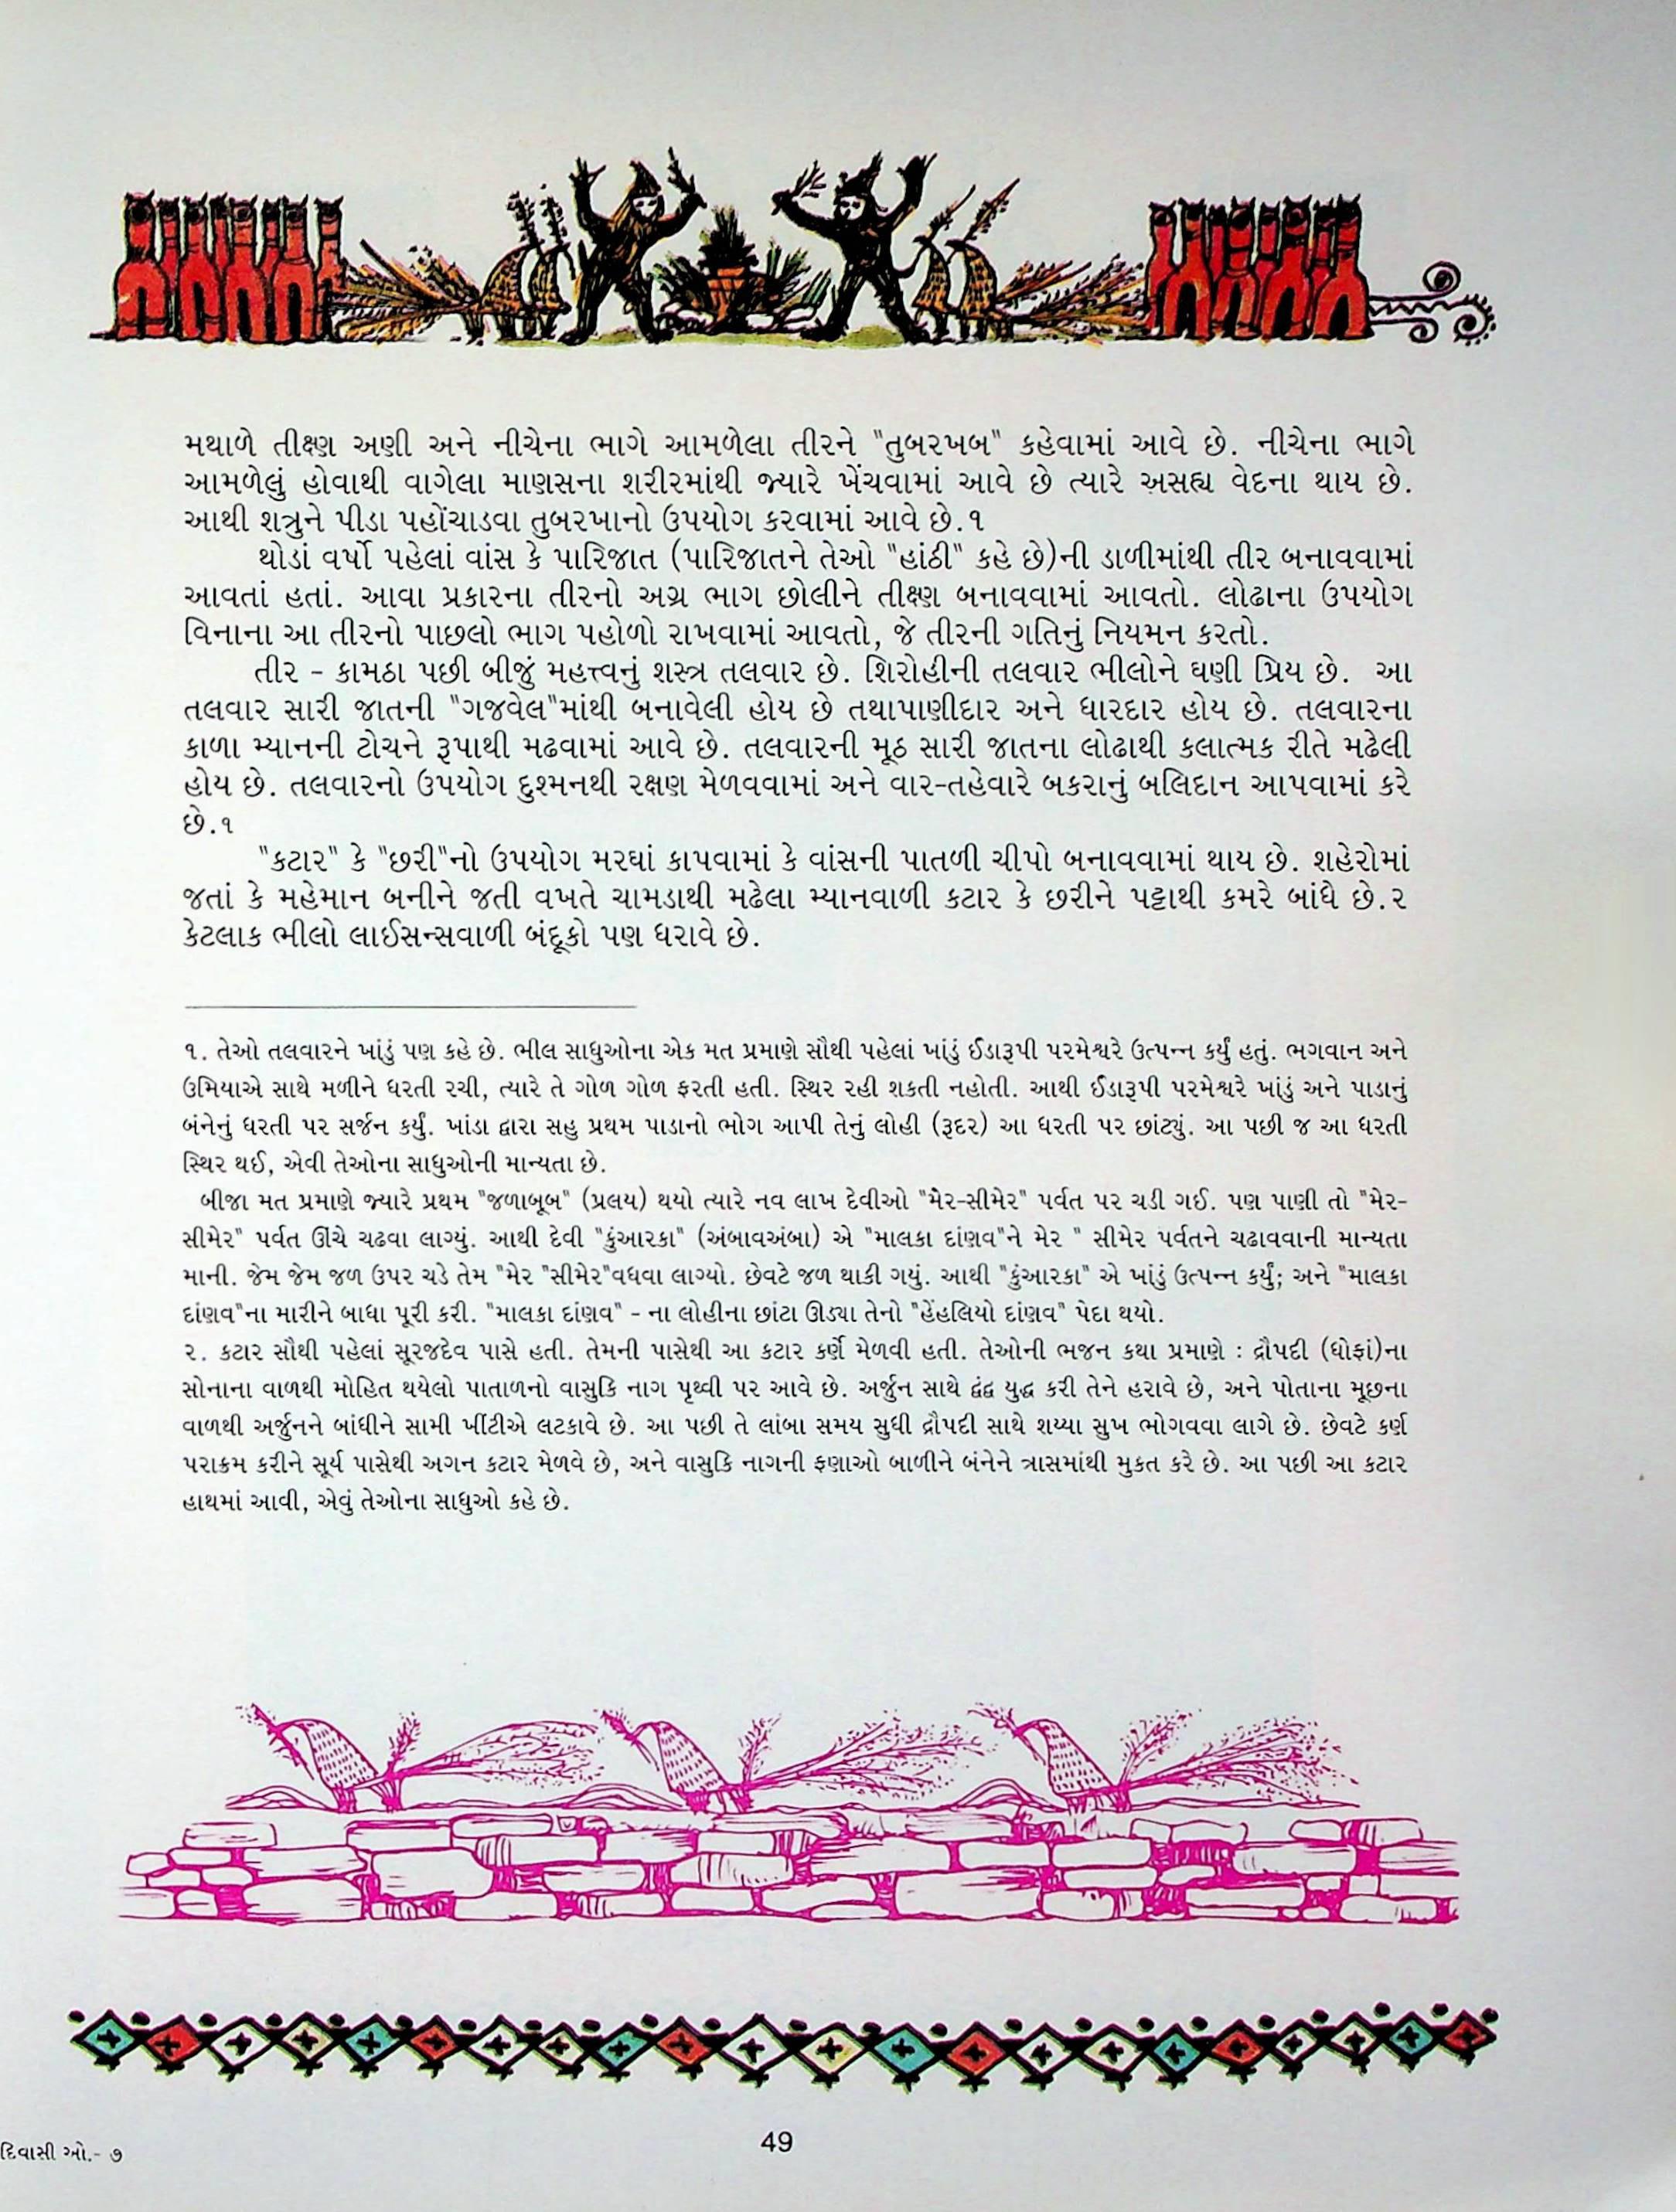 મથાળે તીક્ષ્ણ અણી અને નીચેના ભાગે આમળેલા તીરને "તુબરખબ" કહેવામાં આવે છે. નીચેના ભાગે
આમળેલું હોવાથી વાગેલા માણસના શરીરમાંથી જ્યારે ખેંચવામાં આવે છે ત્યારે અસહ્ય વેદના થાય છે.
આથી શત્રુને પીડા પહોંચાડવા તુબરખાનો ઉપયોગ કરવામાં આવે છે.૧
થોડાં વર્ષો પહેલાં વાંસ કે પારિજાત (પારિજાતને તેઓ "હાંઠી" કહે છે)ની ડાળીમાંથી તીર બનાવવામાં
આવતાં હતાં. આવા પ્રકારના તીરનો અગ્ર ભાગ છોલીને તીક્ષ્ણ બનાવવામાં આવતો. લોઢાના ઉપયોગ
વિનાના આ તીરનો પાછલો ભાગ પહોળો રાખવામાં આવતો, જે તીરની ગતિનું નિયમન કરતો.
તીર - કામઠા પછી બીજું મહત્ત્વનું શસ્ત્ર તલવાર છે. શિરોહીની તલવાર ભીલોને ઘણી પ્રિય છે. આ
તલવાર સારી જાતની "ગજવેલ"માંથી બનાવેલી હોય છે તથાપાણીદાર અને ધારદાર હોય છે. તલવારના
કાળા મ્યાનની ટોચને રૂપાથી મઢવામાં આવે છે. તલવારની મૂઠ સારી જાતના લોઢાથી કલાત્મક રીતે મઢેલી
હોય છે. તલવારનો ઉપયોગ દુશ્મનથી રક્ષણ મેળવવામાં અને વાર-તહેવારે બકરાનું બલિદાન આપવામાં કરે
છે.૧
"કટાર" કે "છરી"નો ઉપયોગ મરઘાં કાપવામાં કે વાંસની પાતળી ચીપો બનાવવામાં થાય છે. શહેરોમાં
જતાં કે મહેમાન બનીને જતી વખતે ચામડાથી મઢેલા મ્યાનવાળી કટાર કે છરીને પટ્ટાથી કમરે બાંધે છે.૨
કેટલાક ભીલો લાઈસન્સવાળી બંદૂકો પણ ધરાવે છે.
૧. તેઓ તલવારને ખાંડું પણ કહે છે. ભીલ સાધુઓના એક મત પ્રમાણે સૌથી પહેલાં ખાંડું ઈંડારૂપી પરમેશ્વરે ઉત્પન્ન કર્યું હતું. ભગવાન અને
ઉમિયાએ સાથે મળીને ધરતી રચી, ત્યારે તે ગોળ ગોળ ફરતી હતી. સ્થિર રહી શકતી નહોતી. આથી ઈંડારૂપી પરમેશ્વરે ખાંડું અને પાડાનું
બંનેનું ધરતી પર સર્જન કર્યું. ખાંડા દ્વારા સહુ પ્રથમ પાડાનો ભોગ આપી તેનું લોહી (રૂદર) આ ધરતી પર છાંટ્યું. આ પછી જ આ ધરતી
સ્થિર થઈ, એવી તેઓના સાધુઓની માન્યતા છે.
બીજા મત પ્રમાણે જ્યારે પ્રથમ "જળાબૂબ" (પ્રલય) થયો ત્યારે નવ લાખ દેવીઓ "મેર-સીમેર" પર્વત પર ચડી ગઈ. પણ પાણી તો "મેર-
સીમેર" પર્વત ઊંચે ચઢવા લાગ્યું. આથી દેવી "કુંઆરકા" (અંબાવઅંબા) એ "માલકા દાંણવ"ને મેર " સીમેર પર્વતને ચઢાવવાની માન્યતા
માની. જેમ જેમ જળ ઉપર ચડે તેમ "મેર "સીમેર"વધવા લાગ્યો. છેવટે જળ થાકી ગયું. આથી "કુંઆરકા" એ ખાંડું ઉત્પન્ન કર્યું; અને "માલકા
દાંણવ"ના મારીને બાધા પૂરી કરી. "માલકા દાંણવ" - ના લોહીના છાંટા ઊડ્યા તેનો "હેંહલિયો દાંણવ" પેદા થયો.
૨. કટાર સૌથી પહેલાં સૂરજદેવ પાસે હતી. તેમની પાસેથી આ કટાર કર્ણે મેળવી હતી. તેઓની ભજન કથા પ્રમાણે : દ્રૌપદી (ધોફાં)ના
સોનાના વાળથી મોહિત થયેલો પાતાળનો વાસુકિ નાગ પૃથ્વી પર આવે છે. અર્જુન સાથે દ્વંદ્વ યુદ્ધ કરી તેને હરાવે છે, અને પોતાના મૂછના
વાળથી અર્જુનને બાંધીને સામી ખીંટીએ લટકાવે છે. આ પછી તે લાંબા સમય સુધી દ્રૌપદી સાથે શય્યા સુખ ભોગવવા લાગે છે. છેવટે કર્ણ
પરાક્રમ કરીને સૂર્ય પાસેથી અગન કટાર મેળવે છે, અને વાસુકિ નાગની ફણાઓ બાળીને બંનેને ત્રાસમાંથી મુકત કરે છે. આ પછી આ કટાર
હાથમાં આવી, એવું તેઓના સાધુઓ કહે છે.
49
દિવાસી ઓ.- ૭